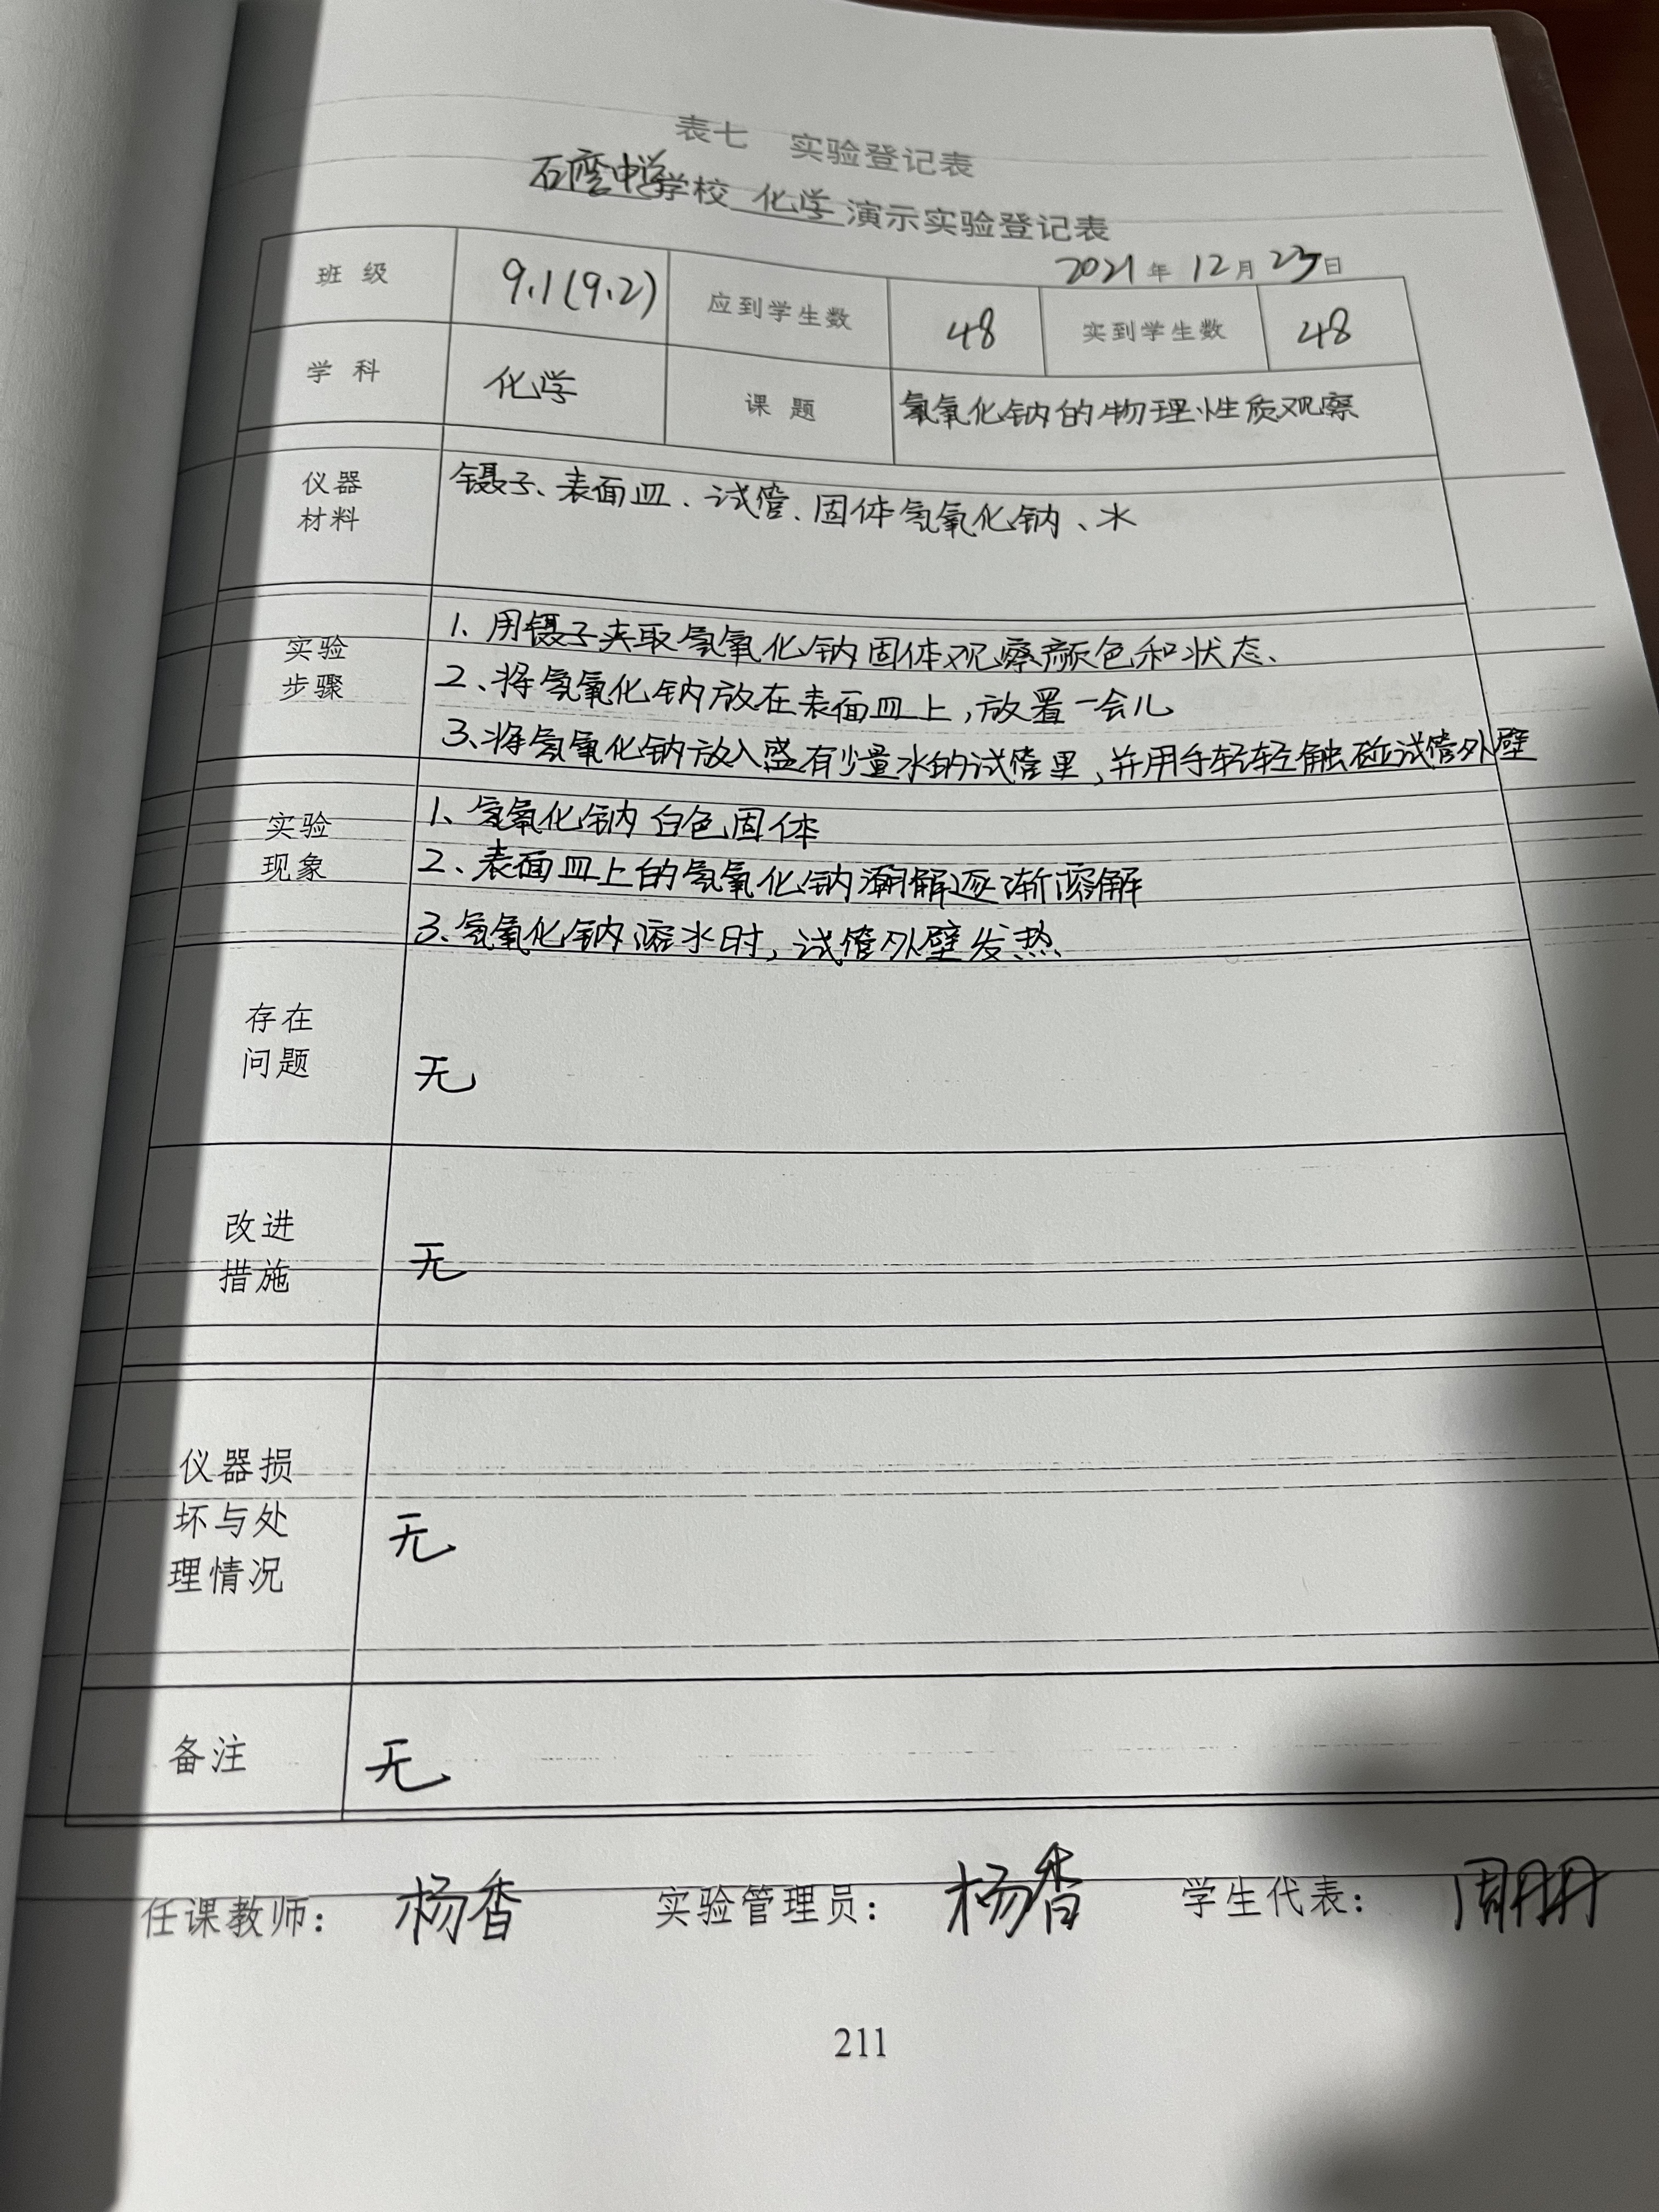 表七 实验登记表
石 中学学校 化学 演示实验登记表
2021年12月23日
班级 9.1(9.2) 应到学生数 48 实到学生数 48
学科 化学 课题 氢氧化钠的物理性质观察
仪器
材料
镊子、表面皿、试管、固体氢氧化钠、水
实验
步骤
1、用镊子夹取氢氧化钠固体观察颜色和状态、
2、将氢氧化钠放在表面皿上,放置一会儿
3、将氢氧化钠放入盛有少量水的试管里,并用手轻轻触碰试管外壁
实验
现象
1、氢氧化钠白色固体
2、表面皿上的氢氧化钠潮解逐渐溶解
3、氢氧化钠溶水时,试管外壁发热
存在
问题
无
改进
措施
无
仪器损
坏与处
理情况
无
备注
无
任课教师: 杨香 实验管理员: 杨香 学生代表: 周
211